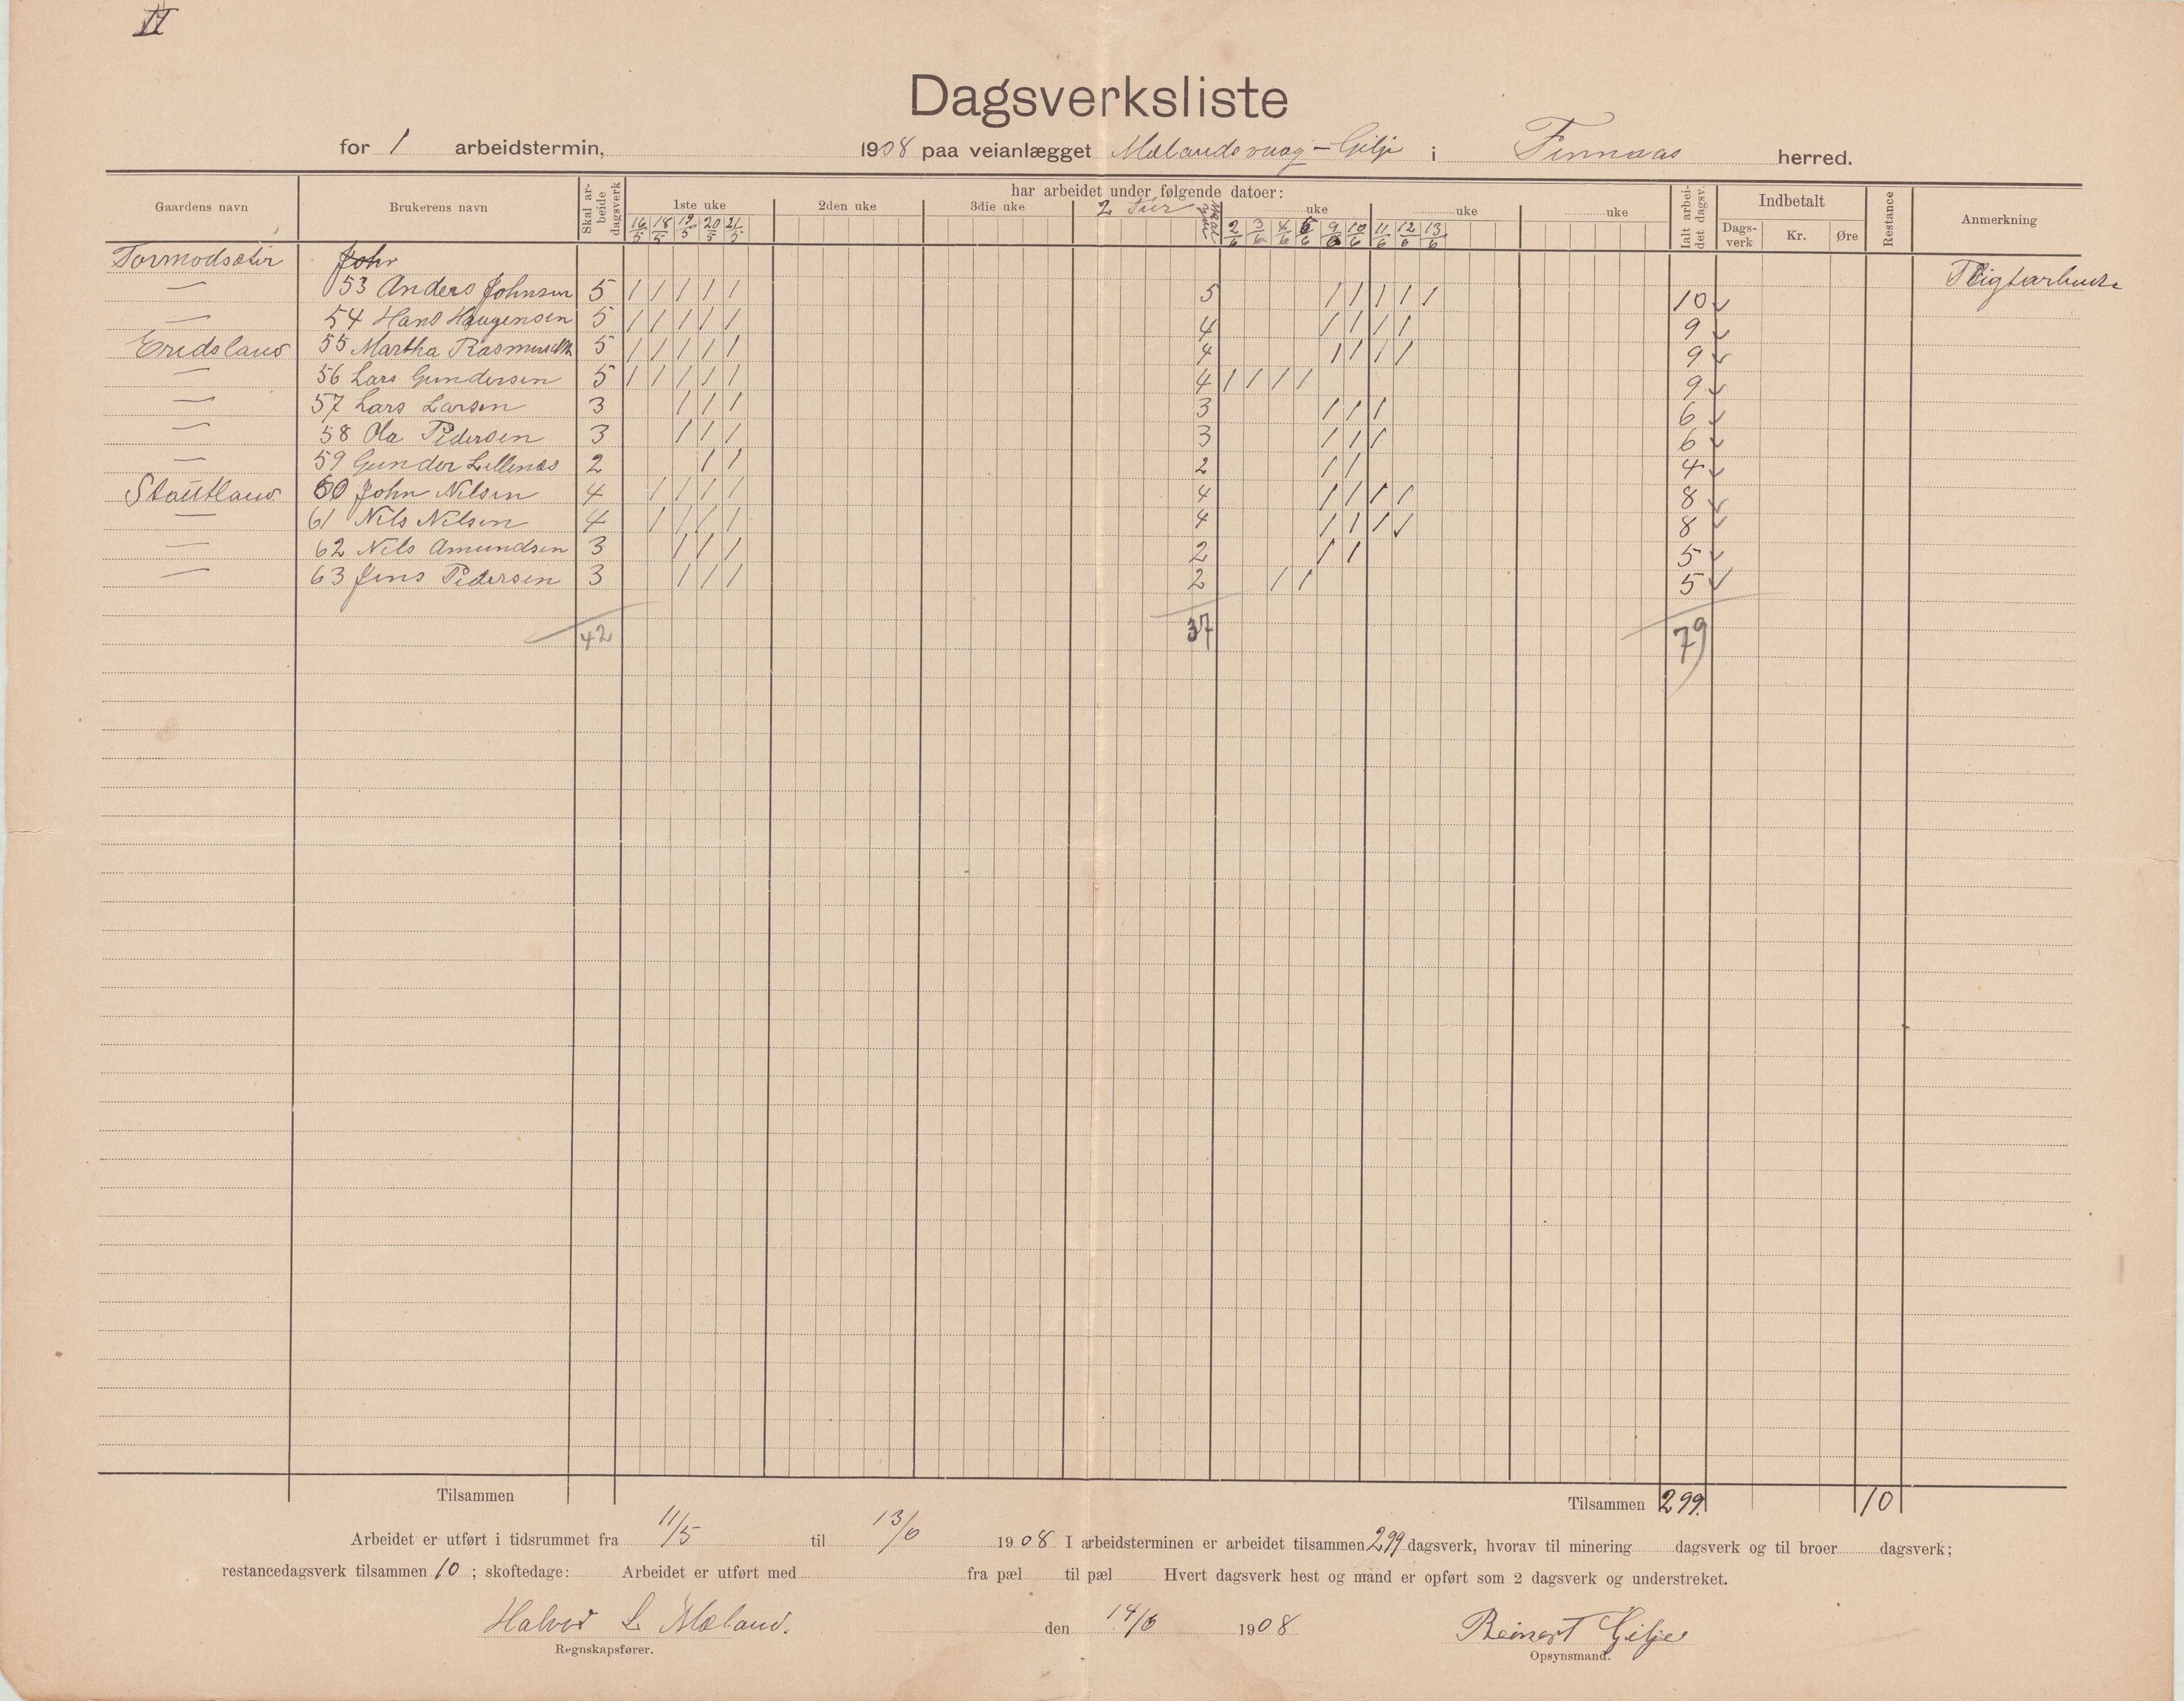 II
Dagsverksliste
for 1 arbeidstermin, 1908 paa veianlægget Mælandsvaag - Gilje i Finnaas herred.
Gaardens navn Brukerens navn Skal arbeide dagsverk har arbeidet under følgende datoer: Ialt arbeidet dagsv. Indbetalt Restance Anmerkning
1ste uke 2den uke 3die uke 2 Tur uke uke uke Dagsverk Kr. Øre
16/5 18/5 19/5 20/5 21/5 2/6 3/6 4/6 5/6 9/6 10/6 11/6 12/6 13/6
Tormodsæter John
— 53 Anders Johnsen 5 / / / / / 5 / / / / / 10 v
— 54 Hans Haugensen 5 / / / / / 4 / / / / 9 v
Eridsland 55 Martha Rasmusdtr 5 / / / / / 4 / / / / 9 v
— 56 Lars Gundersen 5 / / / / / 4 / / / / 9 v
— 57 Lars Larsen 3 / / / 3 / / / 6 v
— 58 Ola Pedersen 3 / / / 3 / / / 6 v
— 59 Gunder Lillenæs 2 / / 2 / / 4 v
Stautland 60 John Nilsen 4 / / / / 4 / / / / 8 v
— 61 Nils Nilsen 4 / / / / 4 / / / / 8 v
— 62 Nils Amundsen 3 / / / 2 / / 5 v
— 63 Jens Pedersen 3 / / / 2 / / 5 v
42 37 79
Tilsammen Tilsammen 299 10
Arbeidet er utført i tidsrummet fra 11/5 til 13/6 1908 I arbeidsterminen er arbeidet tilsammen 299 dagsverk, hvorav til minering dagsverk og til broer dagsverk;
restancedagsverk tilsammen 10 ; skoftedage: Arbeidet er utført med fra pæl til pæl Hvert dagsverk hest og mand er opført som 2 dagsverk og understreket.
Halvor L Mæland. den 14/6 1908 Reinert Gilje
Regnskapsfører. Opsynsmand.